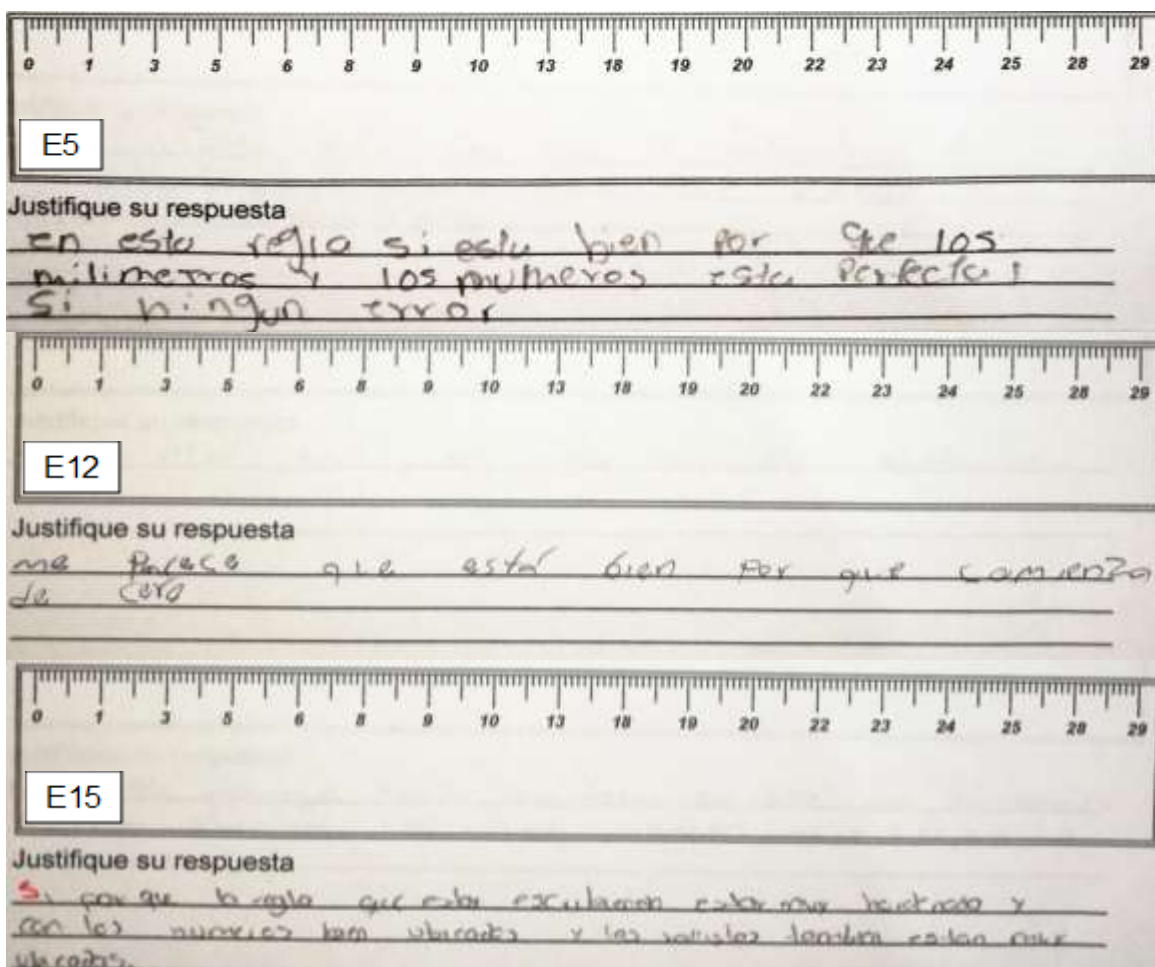 0 1 3 5 6 8 9 10 13 18 19 20 22 23 24 25 28 29
E5
Justifique su respuesta
en esta regla si esta bien por que los
milimetros y los numeros esta perfecta
Si ningun error
0 1 3 5 6 8 9 10 13 18 19 20 22 23 24 25 28 29
E12
Justifique su respuesta
me parece que está bien por que comienza
de cero
0 1 3 5 6 8 9 10 13 18 19 20 22 23 24 25 28 29
E15
Justifique su respuesta
Si por que la regla que y
con los numeros bien ubicados y las estan
ubicadas.